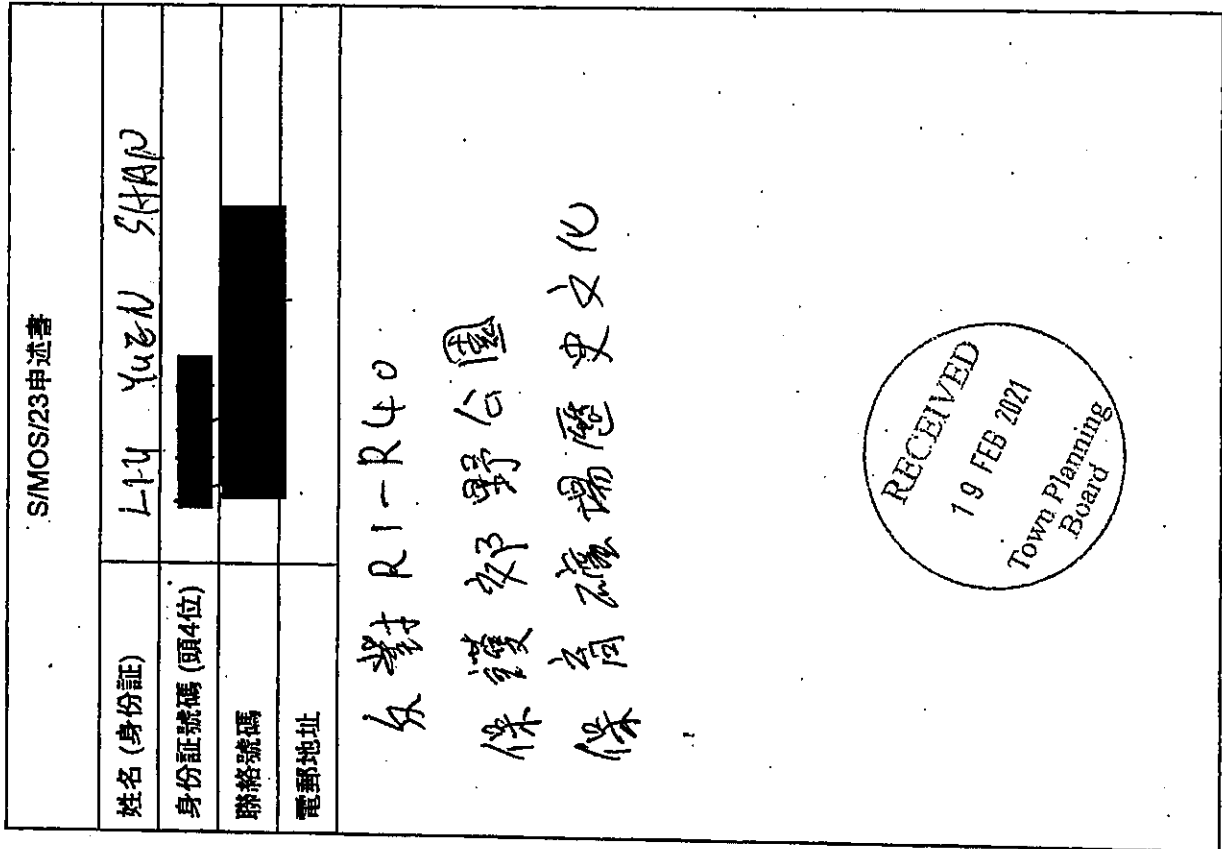 S/MOS/23申述書
姓名 (身份証) LIU YUEN SHAN
身份証號碼 (頭4位)
聯絡號碼
電郵地址
反對 R1-R40
保護郊野公園
保育礦場歷史文化
RECEIVED
19 FEB 2021
Town Planning
Board